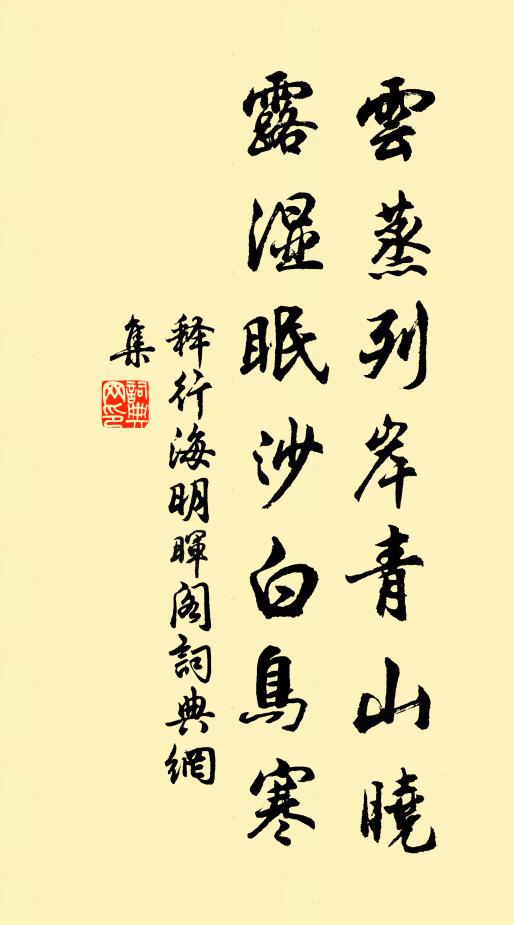 雲蒸列岸青山曉
露湿眠沙白鳥寒
释行海明暉阁詞典網
集
詞典网印